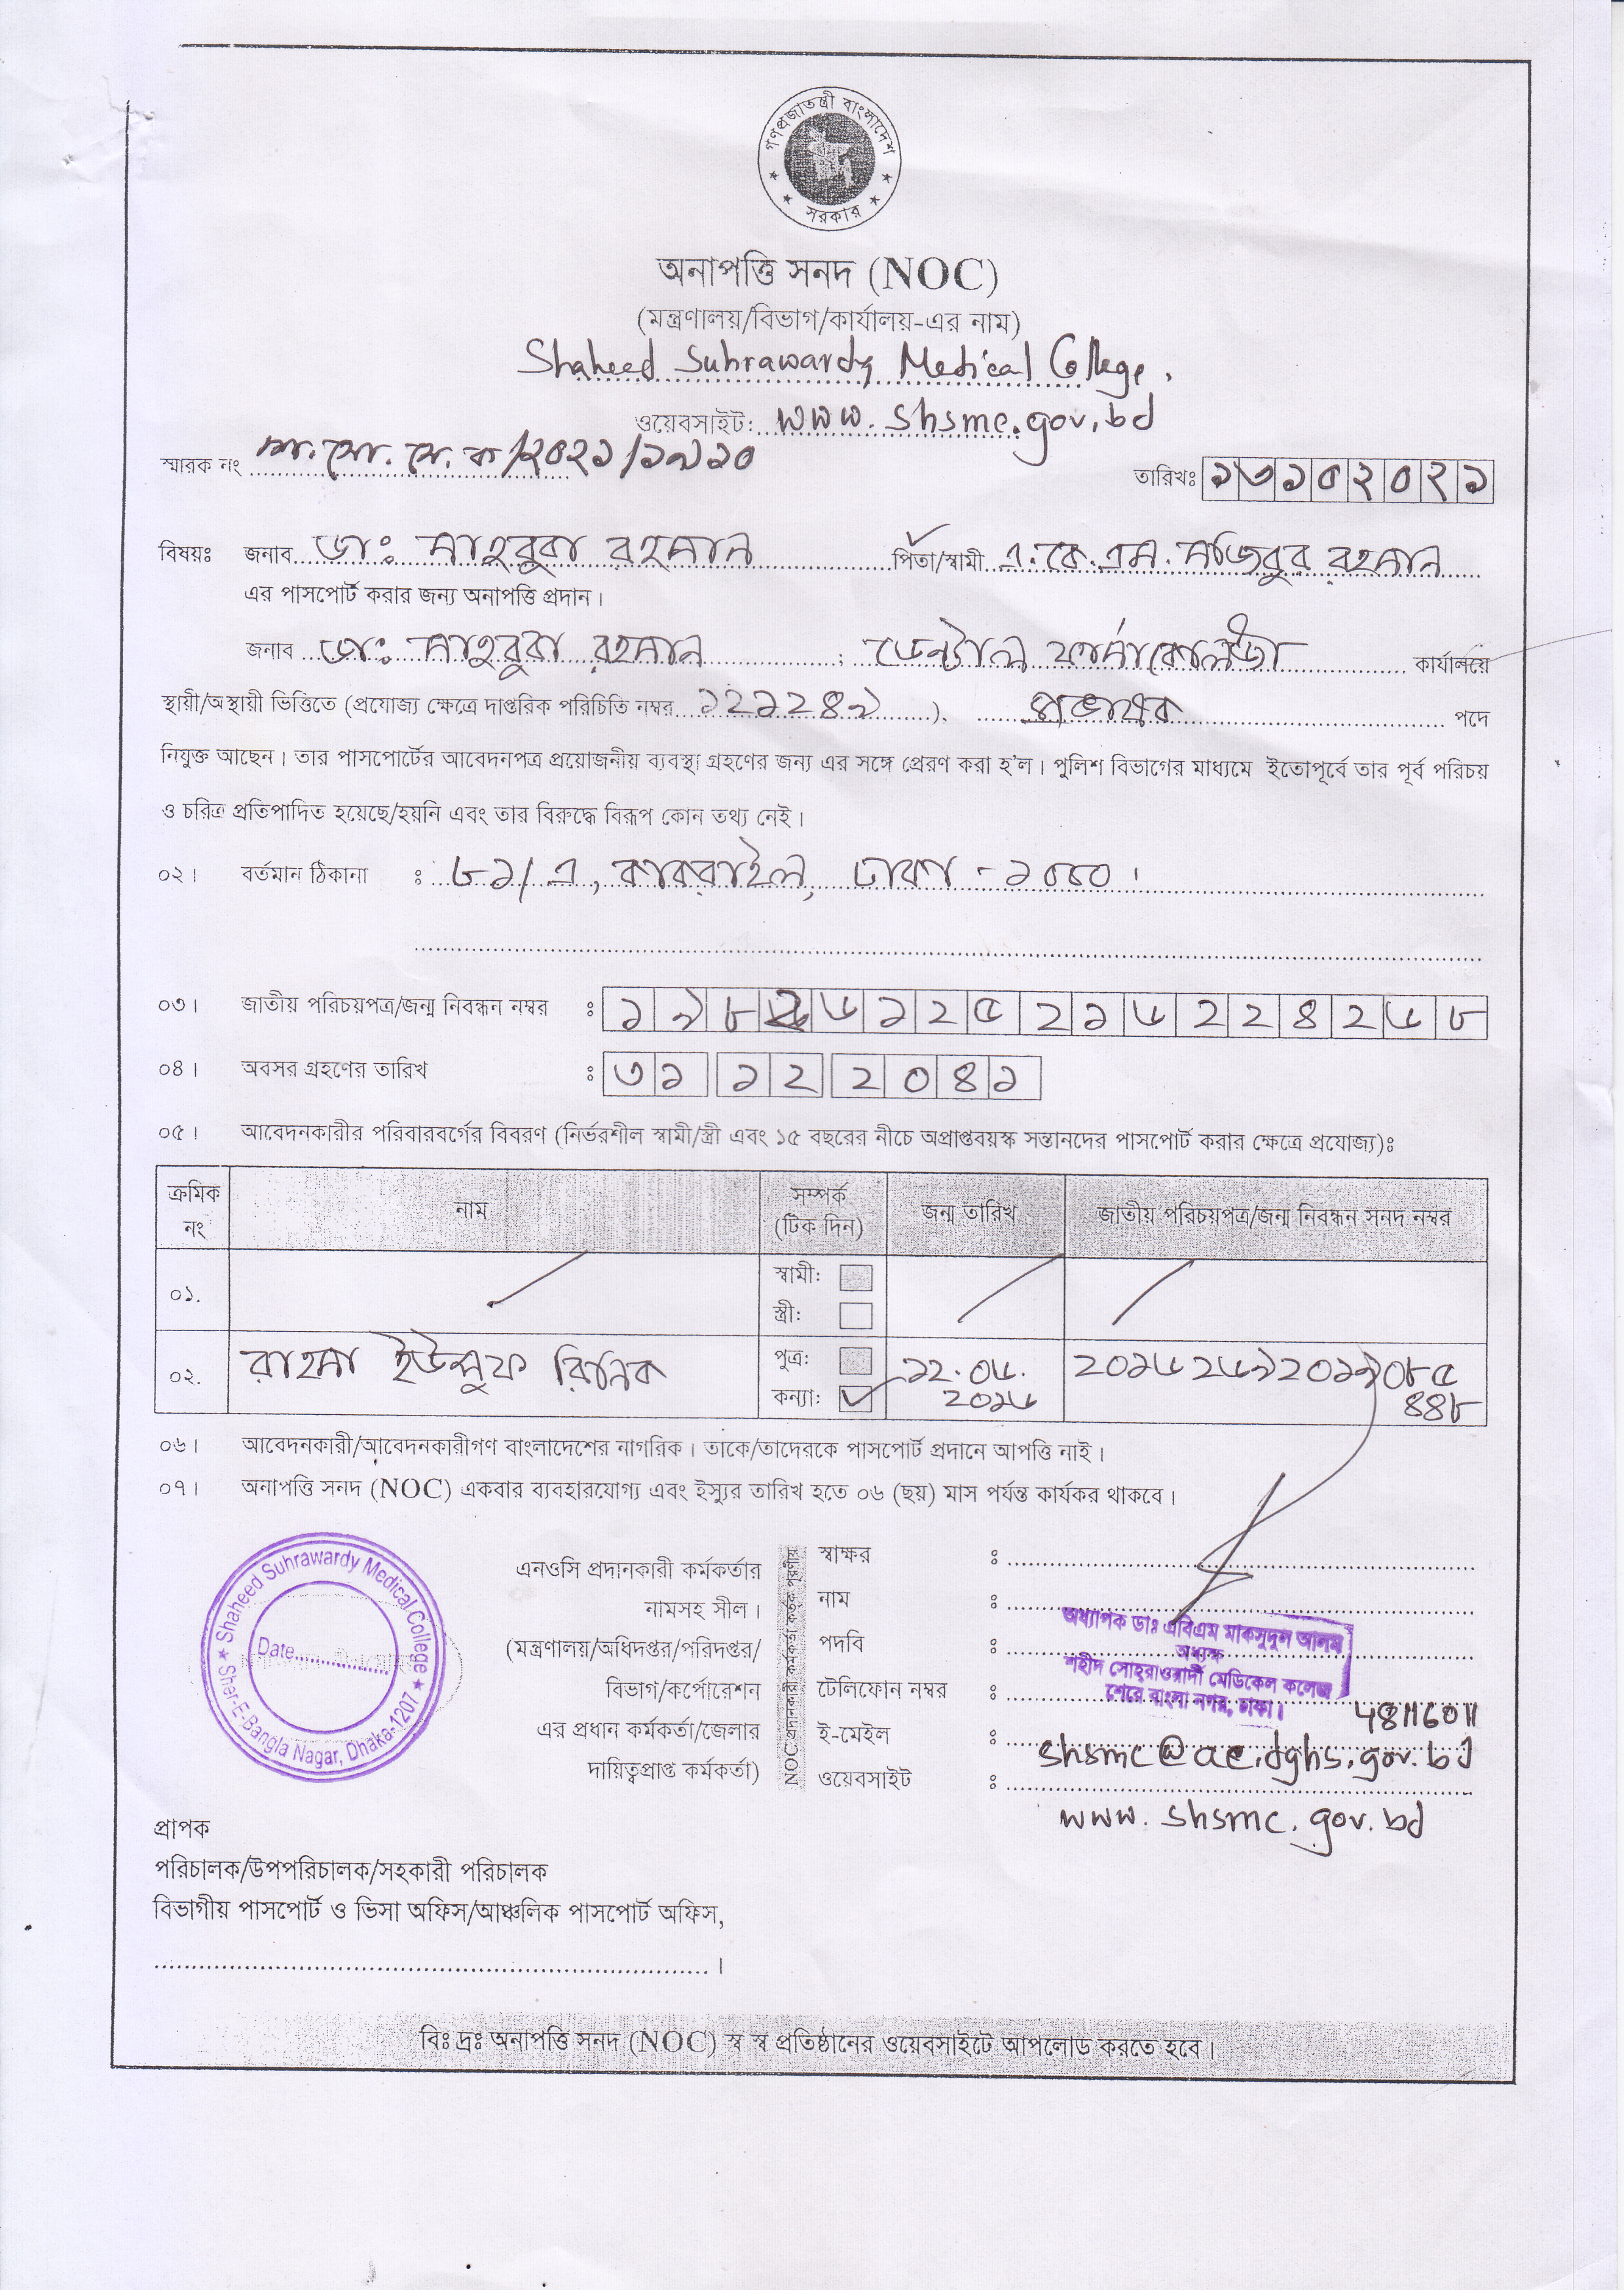 গণপ্রজাতন্ত্রী বাংলাদেশ
সরকার
অনাপত্তি সনদ (NOC)
(মন্ত্রণালয়/বিভাগ/কার্যালয়-এর নাম)
Shaheed Suhrawardy Medical College,
ওয়েবসাইট: www.shsmc.gov.bd
স্মারক নং শ.সো.মে.ক/২০২১/১৯১০
তারিখঃ ১৩১০২০২১
বিষয়ঃ জনাব ডাঃ মাহবুবা রহমান পিতা/স্বামী এ.কে.এম. মজিবুর রহমান
এর পাসপোর্ট করার জন্য অনাপত্তি প্রদান।
জনাব ডাঃ মাহবুবা রহমান ; ডেন্টাল ফার্মাকোলজী কার্যালয়ে
স্থায়ী/অস্থায়ী ভিত্তিতে (প্রযোজ্য ক্ষেত্রে দাপ্তরিক পরিচিতি নম্বর ১২১২৪৯ ), প্রভাষক পদে
নিযুক্ত আছেন। তার পাসপোর্টের আবেদনপত্র প্রয়োজনীয় ব্যবস্থা গ্রহণের জন্য এর সঙ্গে প্রেরণ করা হ'ল। পুলিশ বিভাগের মাধ্যমে ইতোপূর্বে তার পূর্ব পরিচয়
ও চরিত্র প্রতিপাদিত হয়েছে/হয়নি এবং তার বিরুদ্ধে বিরূপ কোন তথ্য নেই।
০২। বর্তমান ঠিকানা : ৮১/এ, কাকরাইল, ঢাকা - ১০০০।
০৩। জাতীয় পরিচয়পত্র/জন্ম নিবন্ধন নম্বর : ১৯৮২৬১২৫২১৬২২৪২৬৮
০৪। অবসর গ্রহণের তারিখ : ৩১ ১২ ২০৪১
০৫। আবেদনকারীর পরিবারবর্গের বিবরণ (নির্ভরশীল স্বামী/স্ত্রী এবং ১৫ বছরের নীচে অপ্রাপ্তবয়স্ক সন্তানদের পাসপোর্ট করার ক্ষেত্রে প্রযোজ্য)ঃ
ক্রমিক নং নাম সম্পর্ক (টিক দিন) জন্ম তারিখ জাতীয় পরিচয়পত্র/জন্ম নিবন্ধন সনদ নম্বর
০১. স্বামী:
স্ত্রী:
০২. রাহমা ইউসুফ রিনিক পুত্র: ১২.০৬. ২০১৬২৬৯২০১৯০৮৫
কন্যা: ২০১৬ ৪৪৮
০৬। আবেদনকারী/আবেদনকারীগণ বাংলাদেশের নাগরিক। তাকে/তাদেরকে পাসপোর্ট প্রদানে আপত্তি নাই।
০৭। অনাপত্তি সনদ (NOC) একবার ব্যবহারযোগ্য এবং ইস্যুর তারিখ হতে ০৬ (ছয়) মাস পর্যন্ত কার্যকর থাকবে।
Shaheed Suhrawardy Medical College
Date
Sher-E-Bangla Nagar, Dhaka-1207
এনওসি প্রদানকারী কর্মকর্তার
নামসহ সীল।
(মন্ত্রণালয়/অধিদপ্তর/পরিদপ্তর/
বিভাগ/কর্পোরেশন
এর প্রধান কর্মকর্তা/জেলার
দায়িত্বপ্রাপ্ত কর্মকর্তা)
NOC প্রদানকারী কর্মকর্তা কর্তৃক পূরণীয়
স্বাক্ষর :
নাম :
পদবি :
টেলিফোন নম্বর :
ই-মেইল :
ওয়েবসাইট :
অধ্যাপক ডাঃ এবিএম মাকসুদুল আলম
অধ্যক্ষ
শহীদ সোহরাওয়ার্দী মেডিকেল কলেজ
শেরে বাংলা নগর, ঢাকা।
48116011
shsmc@ac.dghs.gov.bd
www.shsmc.gov.bd
প্রাপক
পরিচালক/উপপরিচালক/সহকারী পরিচালক
বিভাগীয় পাসপোর্ট ও ভিসা অফিস/আঞ্চলিক পাসপোর্ট অফিস,
বিঃ দ্রঃ অনাপত্তি সনদ (NOC) স্ব স্ব প্রতিষ্ঠানের ওয়েবসাইটে আপলোড করতে হবে।